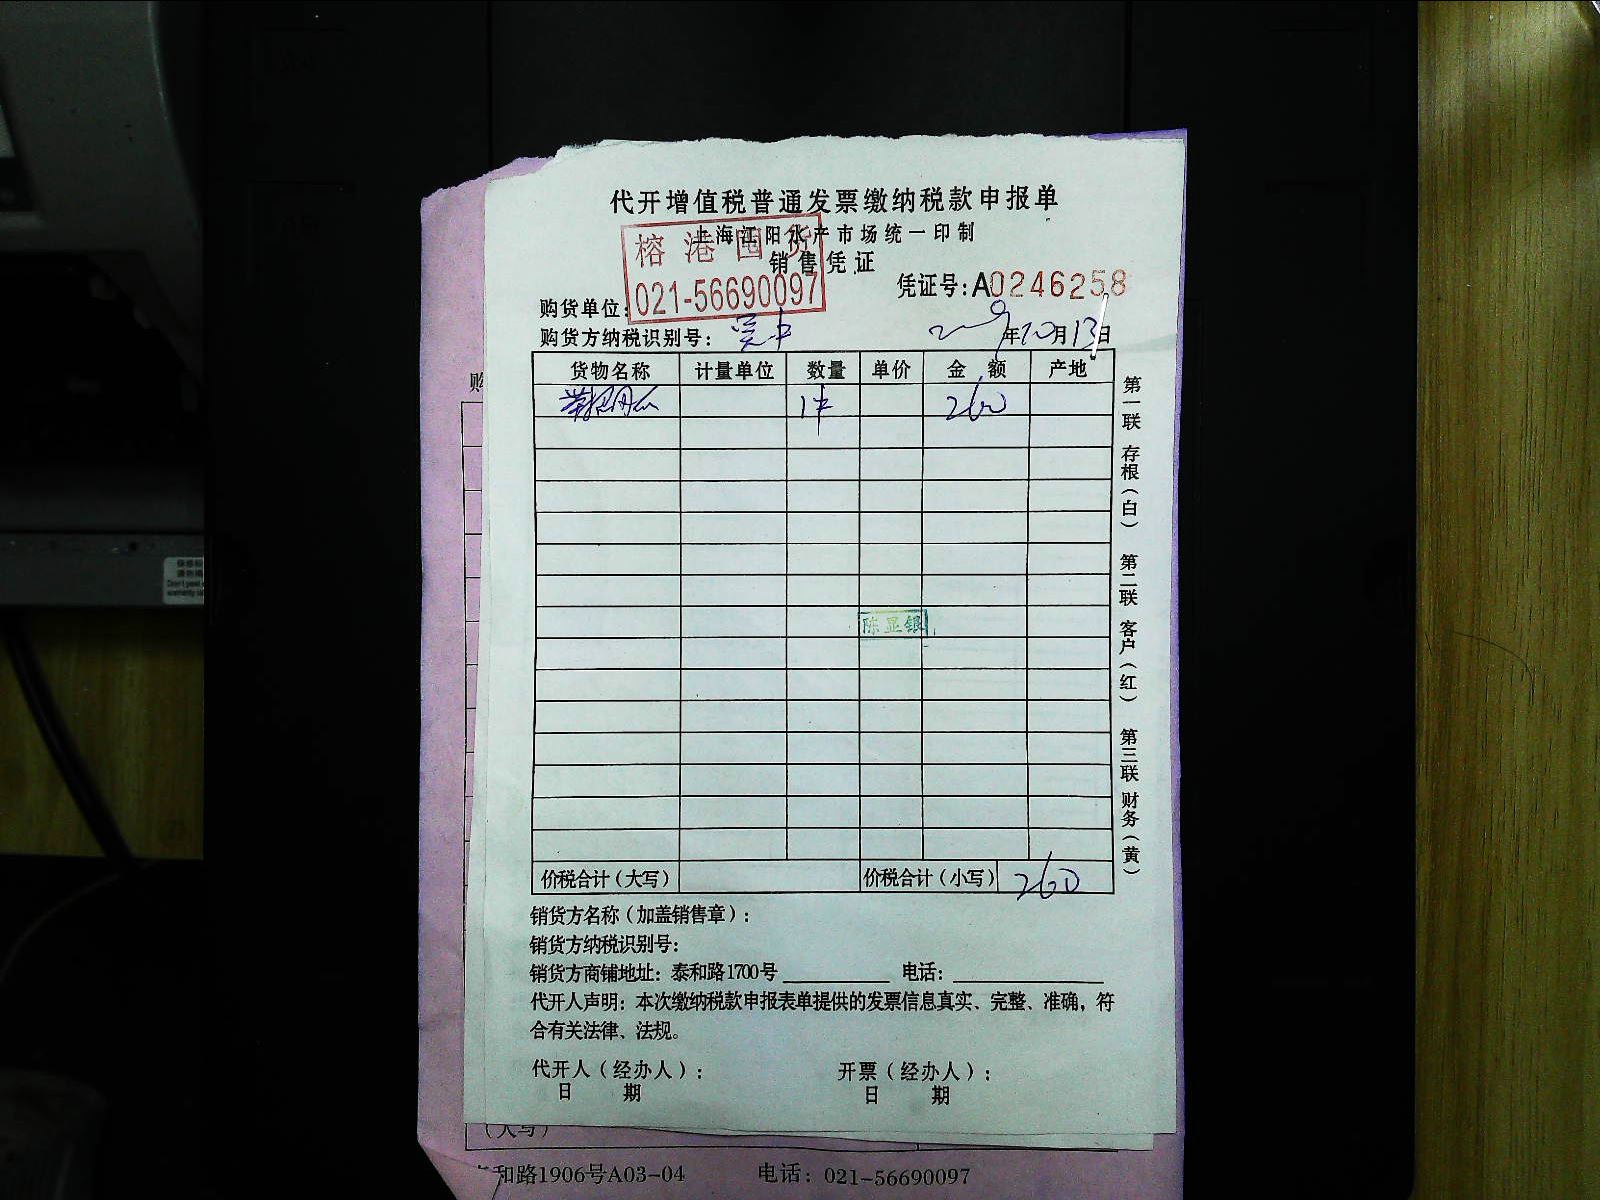 代开增值税普通发票缴纳税款申报单
上海江阳水产市场统一印制
榕港囤货
销售凭证
021-56690097
凭证号:A0246258
购货单位:
购货方纳税识别号:
年10月13日
货物名称 计量单位 数量 单价 金额 产地
1件 260
陈显银
价税合计(大写) 价税合计(小写) 260
第一联 存根(白) 第二联 客户(红) 第三联 财务(黄)
销货方名称(加盖销售章):
销货方纳税识别号:
销货方商铺地址: 泰和路1700号 电话:
代开人声明: 本次缴纳税款申报表单提供的发票信息真实、完整、准确, 符
合有关法律、法规。
代开人(经办人): 开票(经办人):
日期 日期
购
(大写)
和路1906号A03-04 电话: 021-56690097